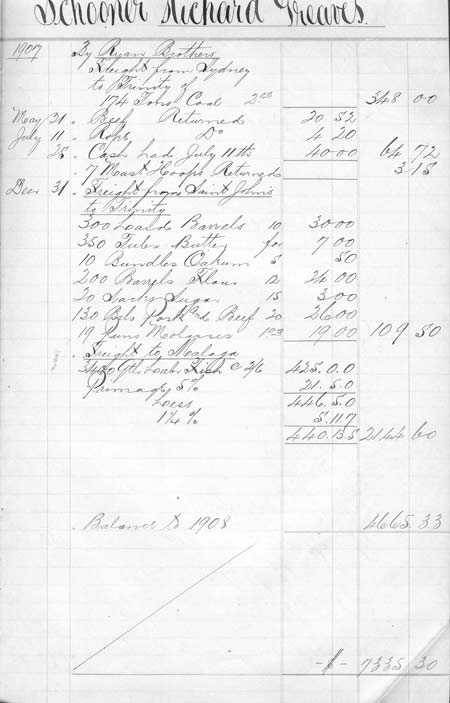 Schooner Richard Greaves.
1907 By Ryan Brothers
Freight from Sydney
to Trinity of
174 Tons Coal 2.00 348 00
May 31 . Beef Returned 20 52
July 11 . Rope Do 4 20
" 25 . Cash had July 11th 40 00 64 72
. 7 Mast Hoops Returned 3 15
Decr 31 . Freight from Saint John's
to Trinity
300 Loaded Barrels 10 30 00
350 Tubs Butter for 7 00
10 Bundles Oakum 5 50
200 Barrels Flour 12 24 00
20 Sacks Sugar 15 3 00
130 Bls Pork and Beef 20 26 00
19 Puns Molasses 1.00 19 00 109 50
. Freight to Malaga
3400 Qtls Labr Fish @ 2/6 425.0.0
Primage 5% 21.5.0
446.5.0
Less
1¼ % 5.11.7
440.13.5 2144 60
. Balance to 1908 4665 33
7335 30